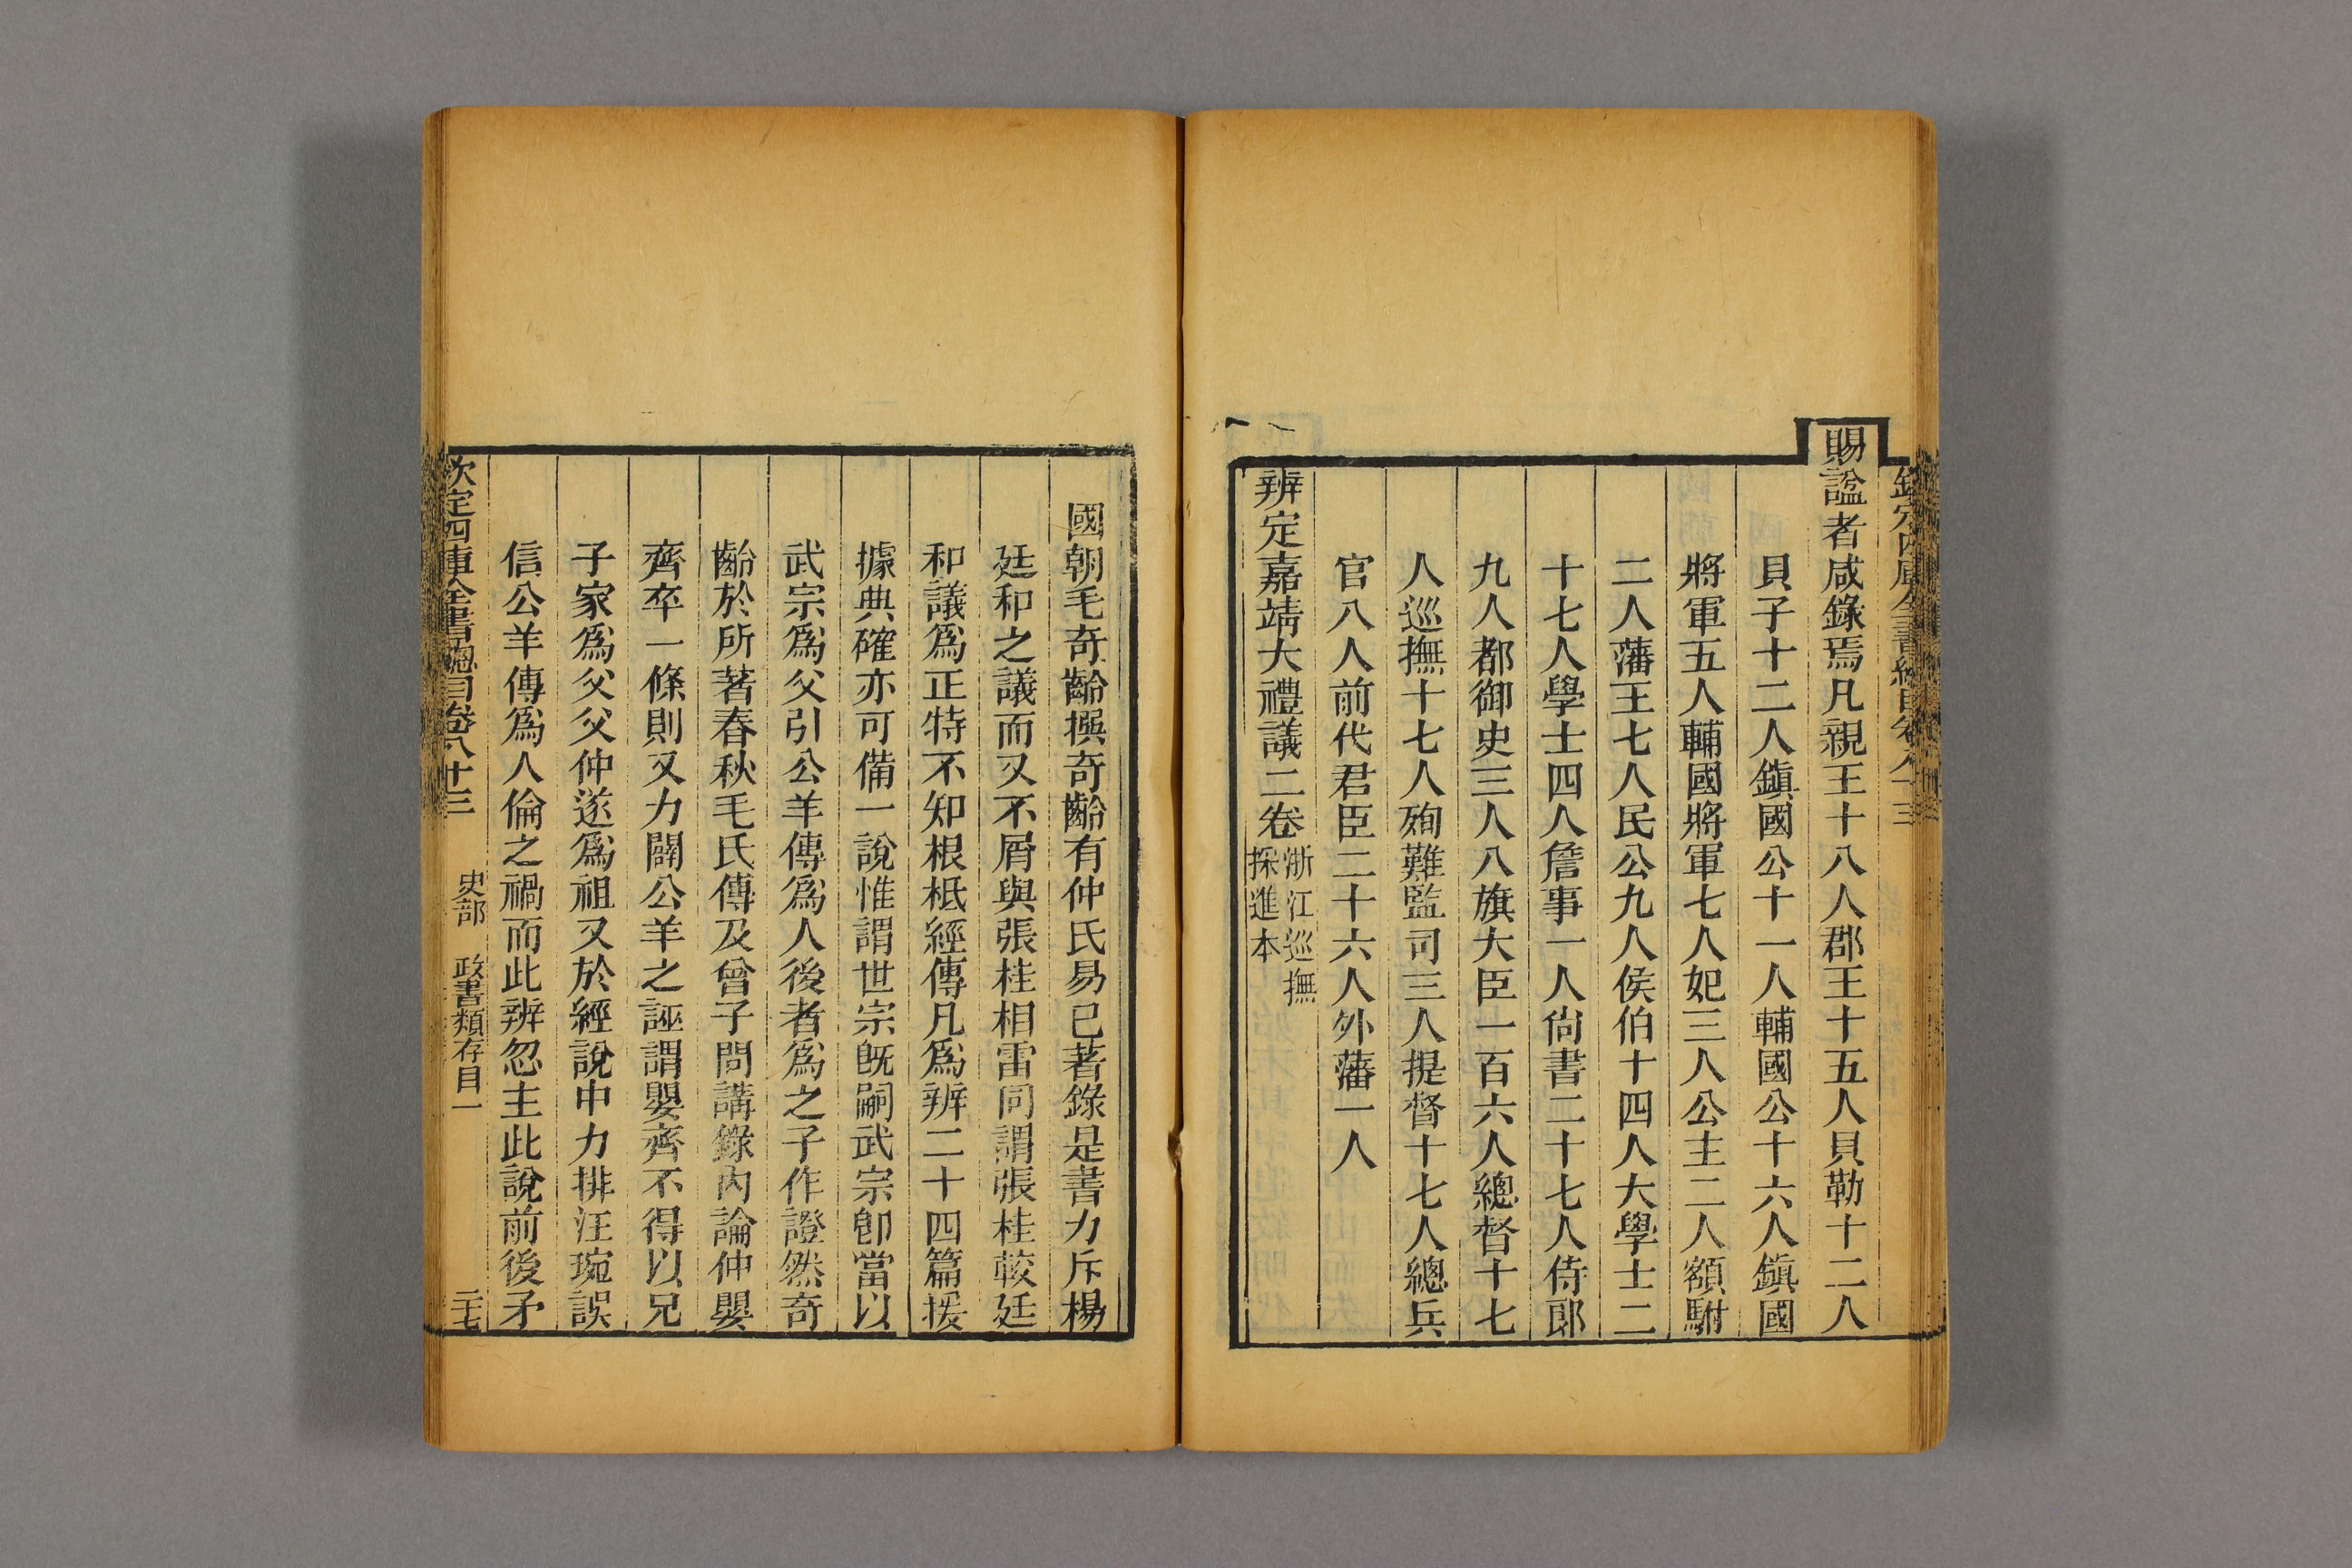 欽定四庫全書總目卷八十三
賜諡者咸錄焉凡親王十八人郡王十五人貝勒十二人
貝子十二人鎮國公十一人輔國公十六人鎮國
將軍五人輔國將軍七人妃三人公主二人額駙
二人藩王七人民公九人侯伯十四人大學士二
十七人學士四人詹事一人尙書二十七人侍郞
九人都御史三人八旗大臣一百六人總督十七
人巡撫十七人殉難監司三人提督十七人總兵
官八人前代君臣二十六人外藩一人
辨定嘉靖大禮議二卷浙江巡撫採進本
國朝毛奇齡撰奇齡有仲氏易已著錄是書力斥楊
廷和之議而又不屑與張桂相雷同謂張桂較廷
和議爲正特不知根柢經傳凡爲辨二十四篇援
據典確亦可備一說惟謂世宗旣嗣武宗卽當以
武宗爲父引公羊傳爲人後者爲之子作證然奇
齡於所著春秋毛氏傳及曾子問講錄內論仲嬰
齊卒一條則又力闢公羊之誣謂嬰齊不得以兄
子家爲父父仲遂爲祖又於經說中力排汪琬誤
信公羊傳爲人倫之禍而此辨忽主此說前後矛
欽定四庫全書總目卷八十三 史部 政書類存目一 二七